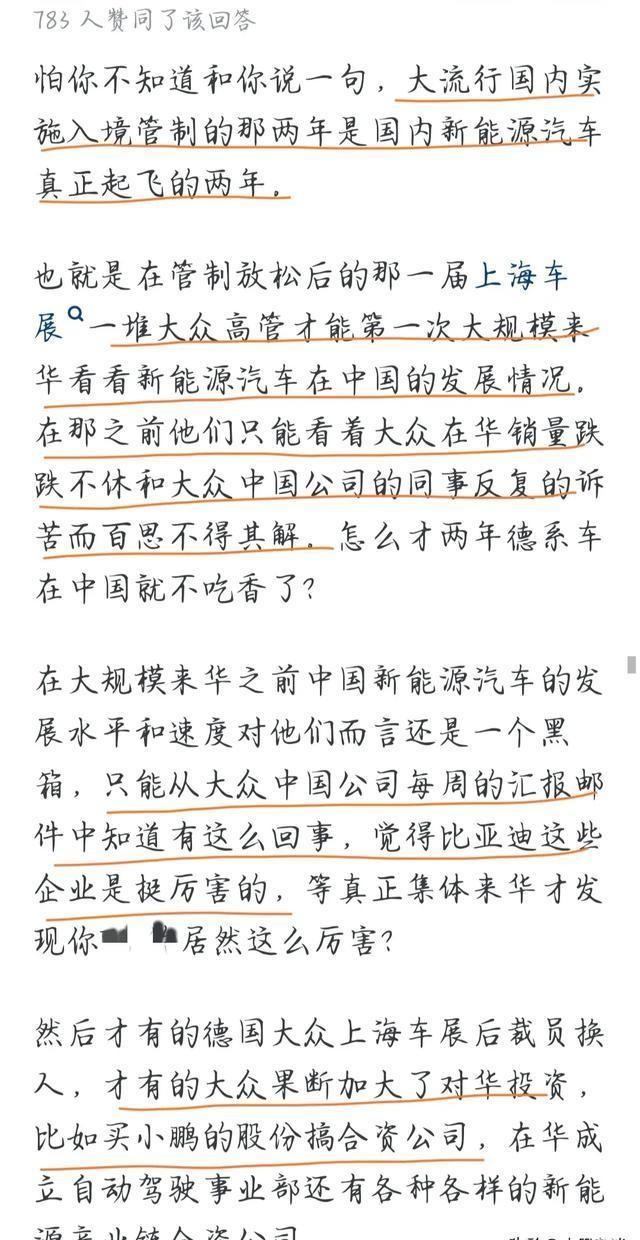 783 人赞同了该回答
怕你不知道和你说一句，大流行国内实
施入境管制的那两年是国内新能源汽车
真正起飞的两年。
也就是在管制放松后的那一届上海车
展 一堆大众高管才能第一次大规模来
华看看新能源汽车在中国的发展情况。
在那之前他们只能看着大众在华销量跌
跌不休和大众中国公司的同事反复的诉
苦而百思不得其解。怎么才两年德系车
在中国就不吃香了？
在大规模来华之前中国新能源汽车的发
展水平和速度对他们而言还是一个黑
箱，只能从大众中国公司每周的汇报邮
件中知道有这么回事，觉得比亚迪这些
企业是挺厉害的，等真正集体来华才发
现你 居然这么厉害？
然后才有的德国大众上海车展后裁员换
人，才有的大众果断加大了对华投资，
比如买小鹏的股份搞合资公司，在华成
立自动驾驶事业部还有各种各样的新能
源产业链合资公司